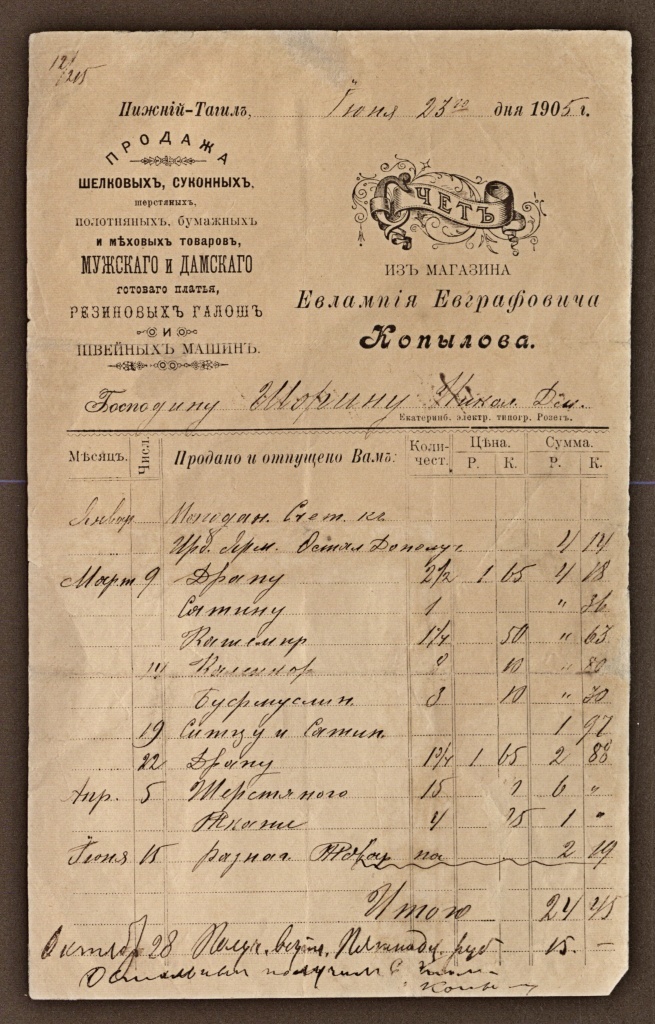 12/215
Нижній-Тагилъ, Іюня 23го дня 1905 г.
ПРОДАЖА
ШЕЛКОВЫХЪ, СУКОННЫХЪ,
шерстяныхъ,
полотняныхъ, бумажныхъ
и мѣховыхъ товаровъ,
МУЖСКАГО и ДАМСКАГО
готоваго платья,
РЕЗИНОВЫХЪ ГАЛОШЪ
И
ШВЕЙНЫХЪ МАШИНЪ.
СЧЕТЪ
ИЗЪ МАГАЗИНА
Евлампія Евграфовича
Копылова.
Господину Шорину Никол. Дем.
Екатеринб. электр. типогр. Розетъ.
Мѣсяцъ. Числ. Продано и отпущено Вамъ: Коли-чест. Цѣна. Р. К. Сумма. Р. К.
Январ Счет.
Остал 4 14
Март 9 Драпу 2 1/2 1 65 4 18
Сатину 1 " 36
Кашемир 1 1/4 50 " 63
10 " 80
Буфмуслин 3 10 " 30
19 Ситцу и Сатин 1 97
22 Драпу 1 3/4 1 65 2 88
Апр. 5 Шерстяного 15 6 "
Ткани 4 25 1 "
Іюня 15 разнаг. Товар на 2 19
Итого 24 45
Октябр 28 Получ. Пятнадц. руб 15. –
получил